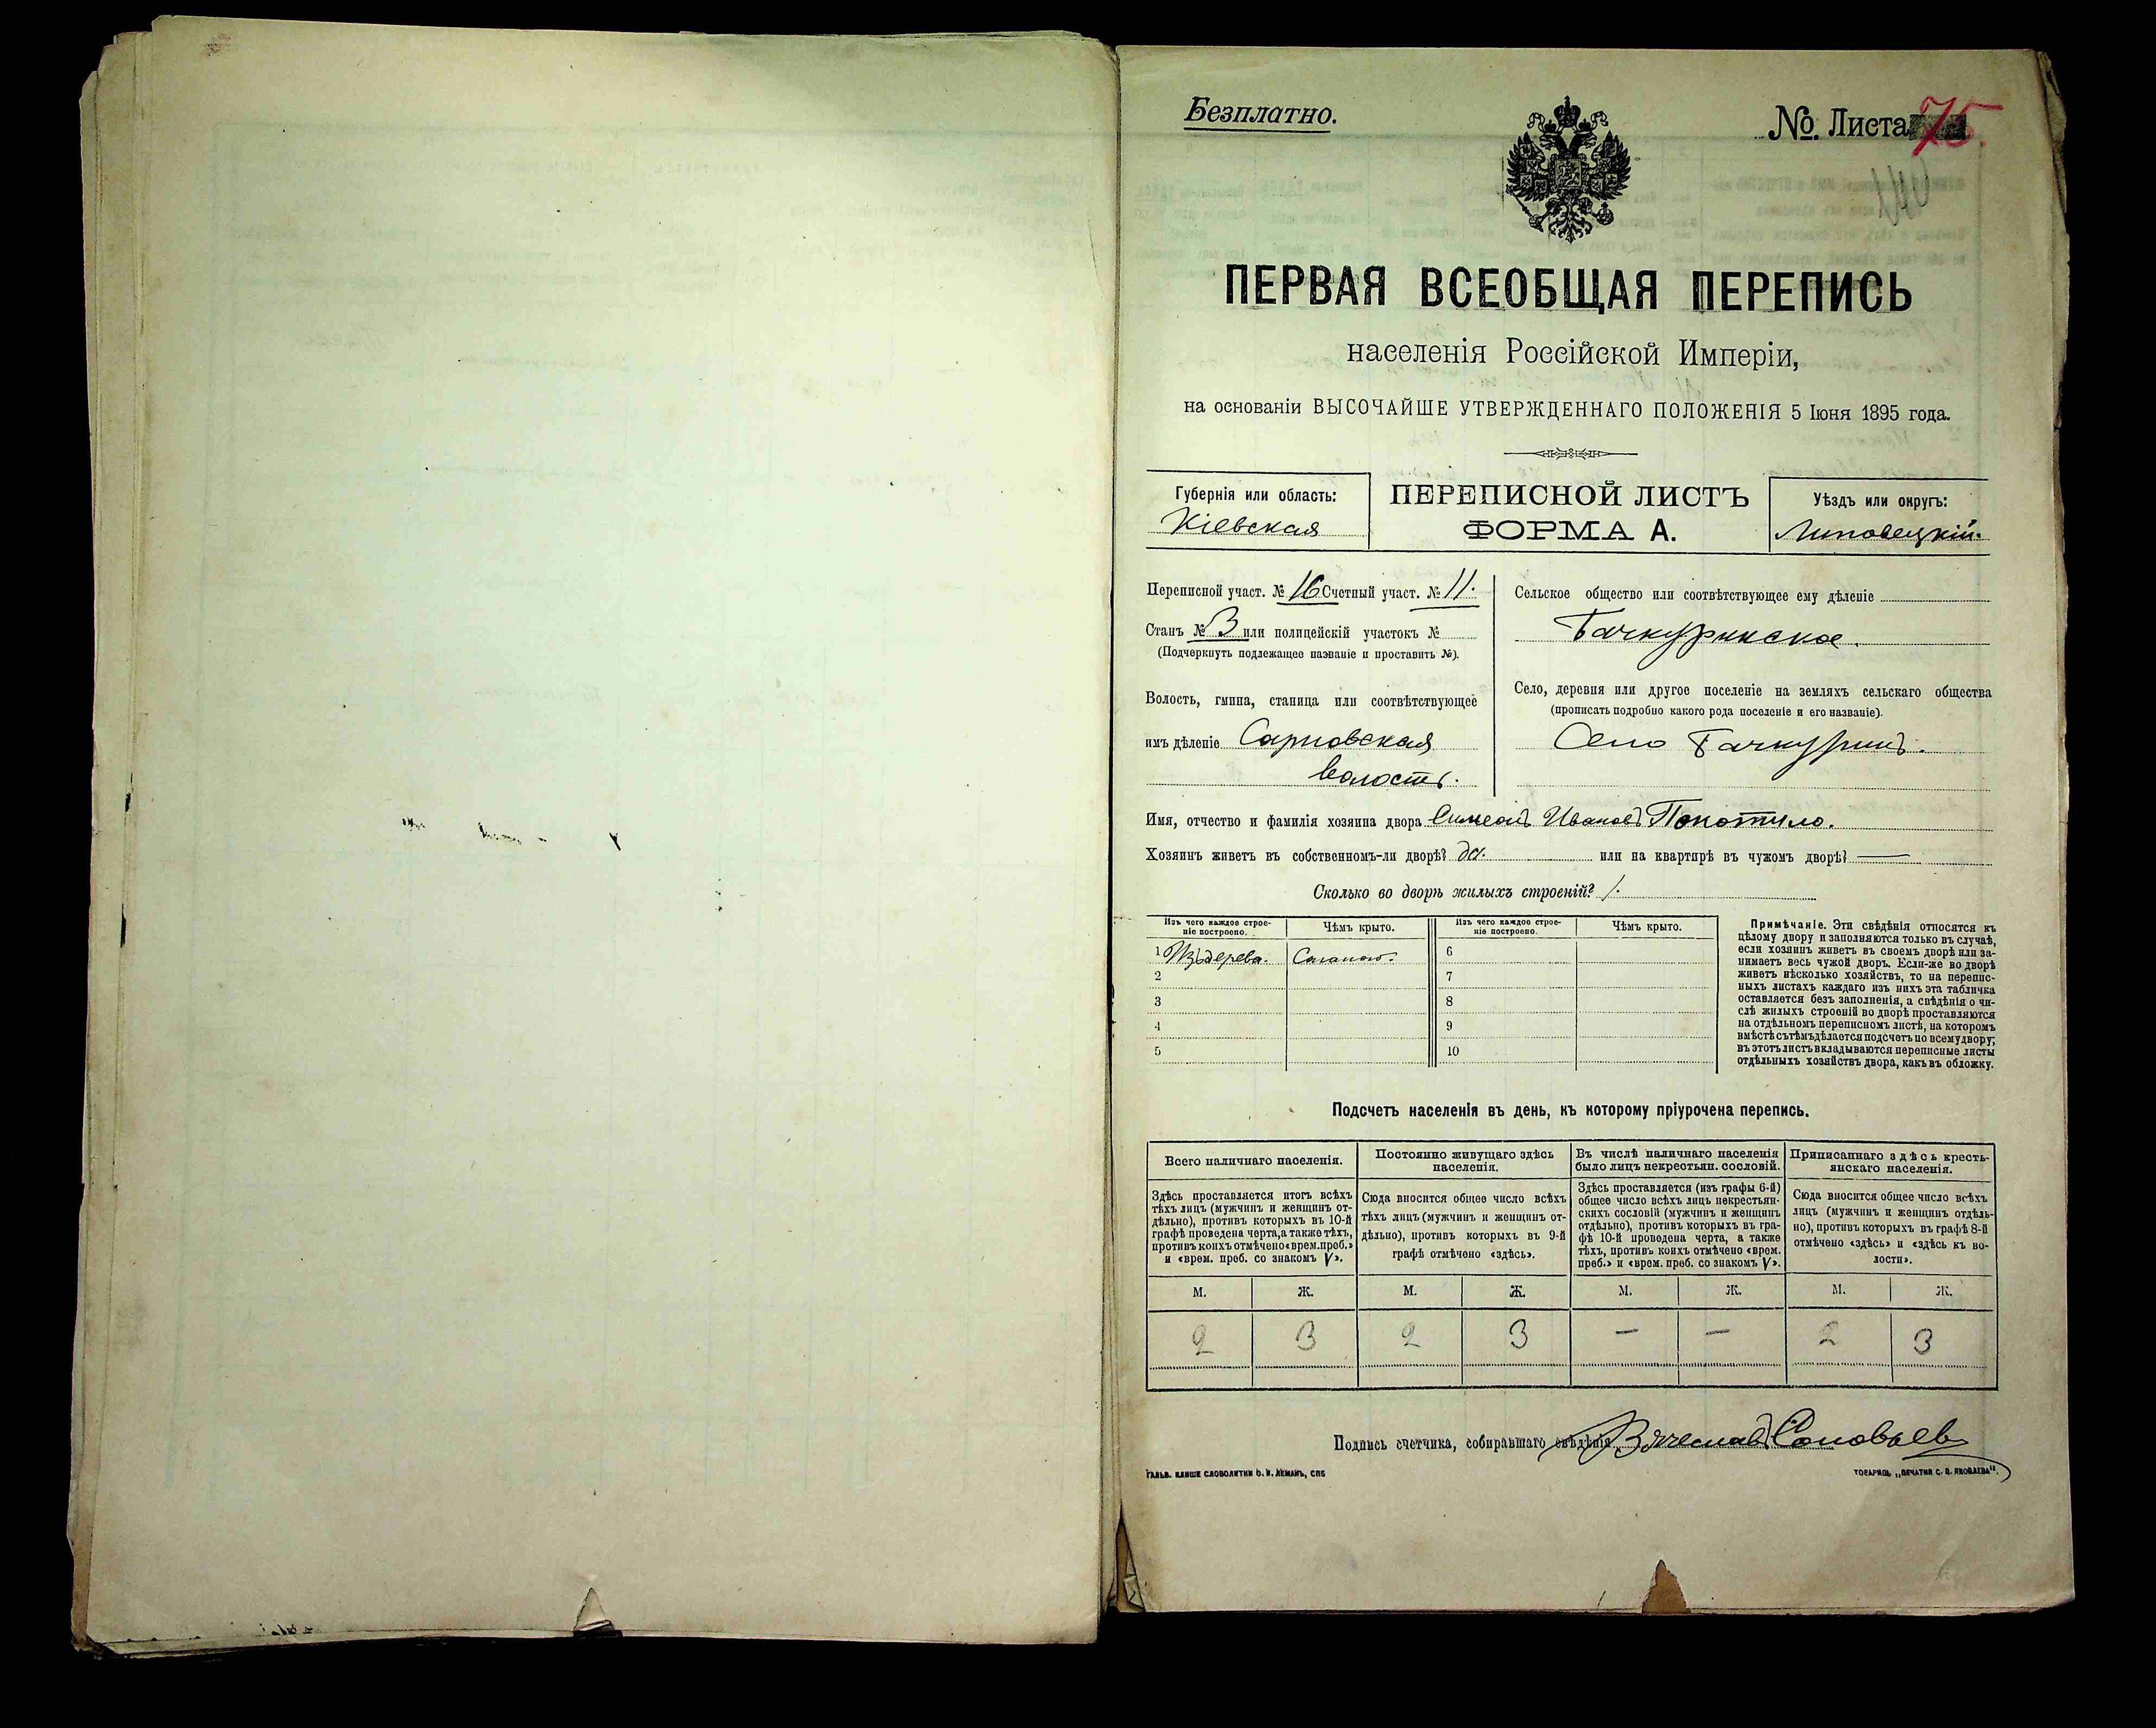 Безплатно.
№. Листа 75.
ПЕРВАЯ ВСЕОБЩАЯ ПЕРЕПИСЬ
населенія Россійской Имперіи,
на основаніи ВЫСОЧАЙШЕ УТВЕРЖДЕННАГО ПОЛОЖЕНІЯ 5 Іюня 1895 года.
Губернія или область:
Кіевская
ПЕРЕПИСНОЙ ЛИСТЪ
ФОРМА А.
Уѣздъ или округъ:
Липовецкій.
Переписной участ. № 16 Счетный участ. № 11.
Станъ № 3 или полицейскій участокъ №
(Подчеркнуть подлежащее названіе и проставить №).
Волость, гмина, станица или соотвѣтствующее
имъ дѣленіе Сарновская
волость.
Сельское общество или соотвѣтствующее ему дѣленіе
Бачкуринское.
Село, деревня или другое поселеніе на земляхъ сельскаго общества
(прописать подробно какого рода поселеніе и его названіе).
Село Бачкуринъ.
Имя, отчество и фамилія хозяина двора Симеонъ Ивановъ Покотило.
Хозяинъ живетъ въ собственномъ-ли дворѣ? да. или на квартирѣ въ чужомъ дворѣ? —
Сколько во дворѣ жилыхъ строеній? 1.
Изъ чего каждое строе-
ніе построено.
Чѣмъ крыто.
Изъ чего каждое строе-
ніе построено.
Чѣмъ крыто.
1 Изъ дерева. Соломою. 6
2 7
3 8
4 9
5 10
Примѣчаніе. Эти свѣдѣнія относятся къ
цѣлому двору и заполняются только въ случаѣ,
если хозяинъ живетъ въ своемъ дворѣ или за-
нимаетъ весь чужой дворъ. Если-же во дворѣ
живетъ нѣсколько хозяйствъ, то на перепис-
ныхъ листахъ каждаго изъ нихъ эта табличка
оставляется безъ заполненія, а свѣдѣнія о чи-
слѣ жилыхъ строеній во дворѣ проставляются
на отдѣльномъ переписномъ листѣ, на которомъ
вмѣстѣ съ тѣмъ дѣлается подсчетъ по всему двору;
въ этотъ листъ вкладываются переписные листы
отдѣльныхъ хозяйствъ двора, какъ въ обложку.
Подсчетъ населенія въ день, къ которому пріурочена перепись.
Всего наличнаго населенія.
Здѣсь проставляется итогъ всѣхъ
тѣхъ лицъ (мужчинъ и женщинъ от-
дѣльно), противъ которыхъ въ 10-й
графѣ проведена черта, а также тѣхъ,
противъ коихъ отмѣчено «врем. преб.»
и «врем. преб. со знакомъ V».
Постоянно живущаго здѣсь
населенія.
Сюда вносится общее число всѣхъ
тѣхъ лицъ (мужчинъ и женщинъ от-
дѣльно), противъ которыхъ въ 9-й
графѣ отмѣчено «здѣсь».
Въ числѣ наличнаго населенія
было лицъ некрестьян. сословій.
Здѣсь проставляется (изъ графы 6-й)
общее число всѣхъ лицъ некрестьян-
скихъ сословій (мужчинъ и женщинъ
отдѣльно), противъ которыхъ въ гра-
фѣ 10-й проведена черта, а также
тѣхъ, противъ коихъ отмѣчено «врем.
преб.» и «врем. преб. со знакомъ V».
Приписаннаго здѣсь кресть-
янскаго населенія.
Сюда вносится общее число всѣхъ
лицъ (мужчинъ и женщинъ отдѣль-
но), противъ которыхъ въ графѣ 8-й
отмѣчено «здѣсь» и «здѣсь къ во-
лости».
М. Ж. М. Ж. М. Ж. М. Ж.
2 3 2 3 — — 2 3
Подпись счетчика, собиравшаго свѣдѣнія Вячеславъ Соловьев
ГАЛЬВ. КЛИШЕ СЛОВОЛИТНИ О. И. ЛЕМАНЪ, СПБ
ТОВАРИЩ. „ПЕЧАТНЯ С. П. ЯКОВЛЕВА".